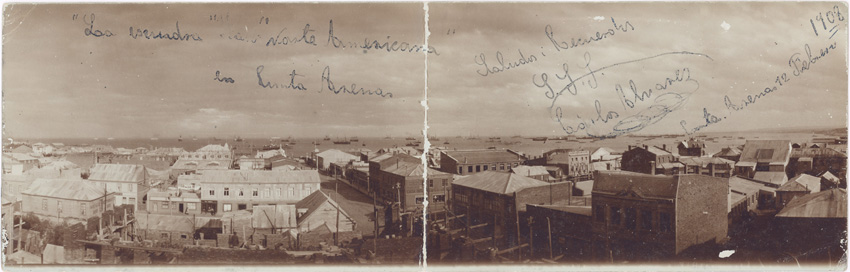 "La escuadra "Norte Americana"
en Punta Arenas
Saludos i Recuerdos
S. S. S.
Carlos Alvarez
Punta Arenas 12 Febrero
1908